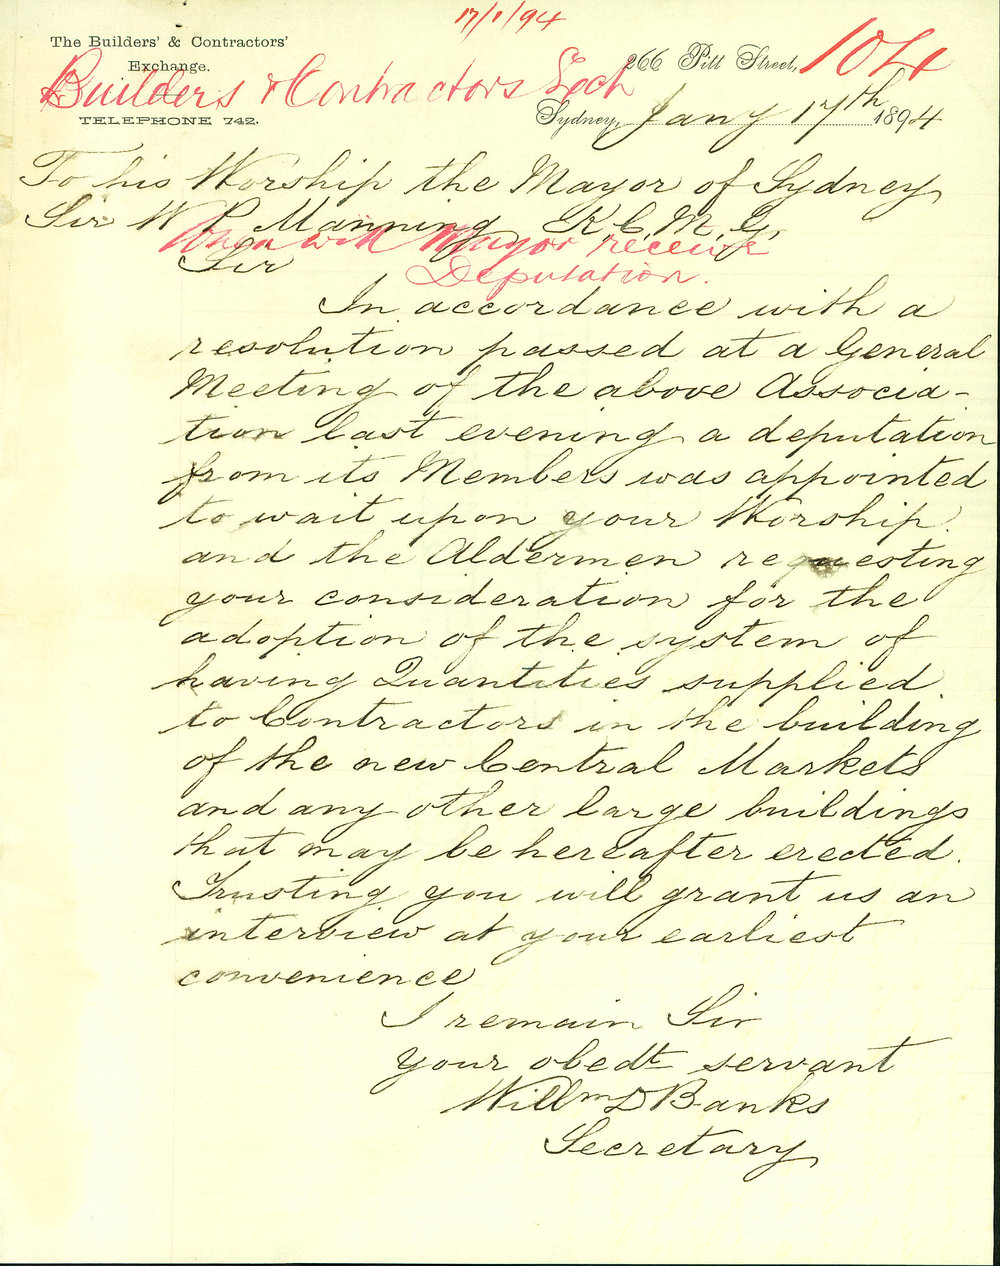 17/1/94
The Builders' & Contractors'
Exchange.
266 Pitt Street,
104
Builders & Contractors Exch
TELEPHONE 742.
Sydney, Jany 17th 1894
To his Worship the Mayor of Sydney
Sir W P Manning K.C.M.G.
When will Mayor receive
Sir
Deputation.
In accordance with a
resolution passed at a General
Meeting of the above Associa-
tion last evening a deputation
from its Members was appointed
to wait upon your Worship
and the Aldermen requesting
your consideration for the
adoption of the system of
having Quantities supplied
to Contractors in the building
of the new Central Markets
and any other large buildings
that may be hereafter erected.
Trusting you will grant us an
interview at your earliest
convenience
I remain Sir
your obedt servant
Willm D Banks
Secretary